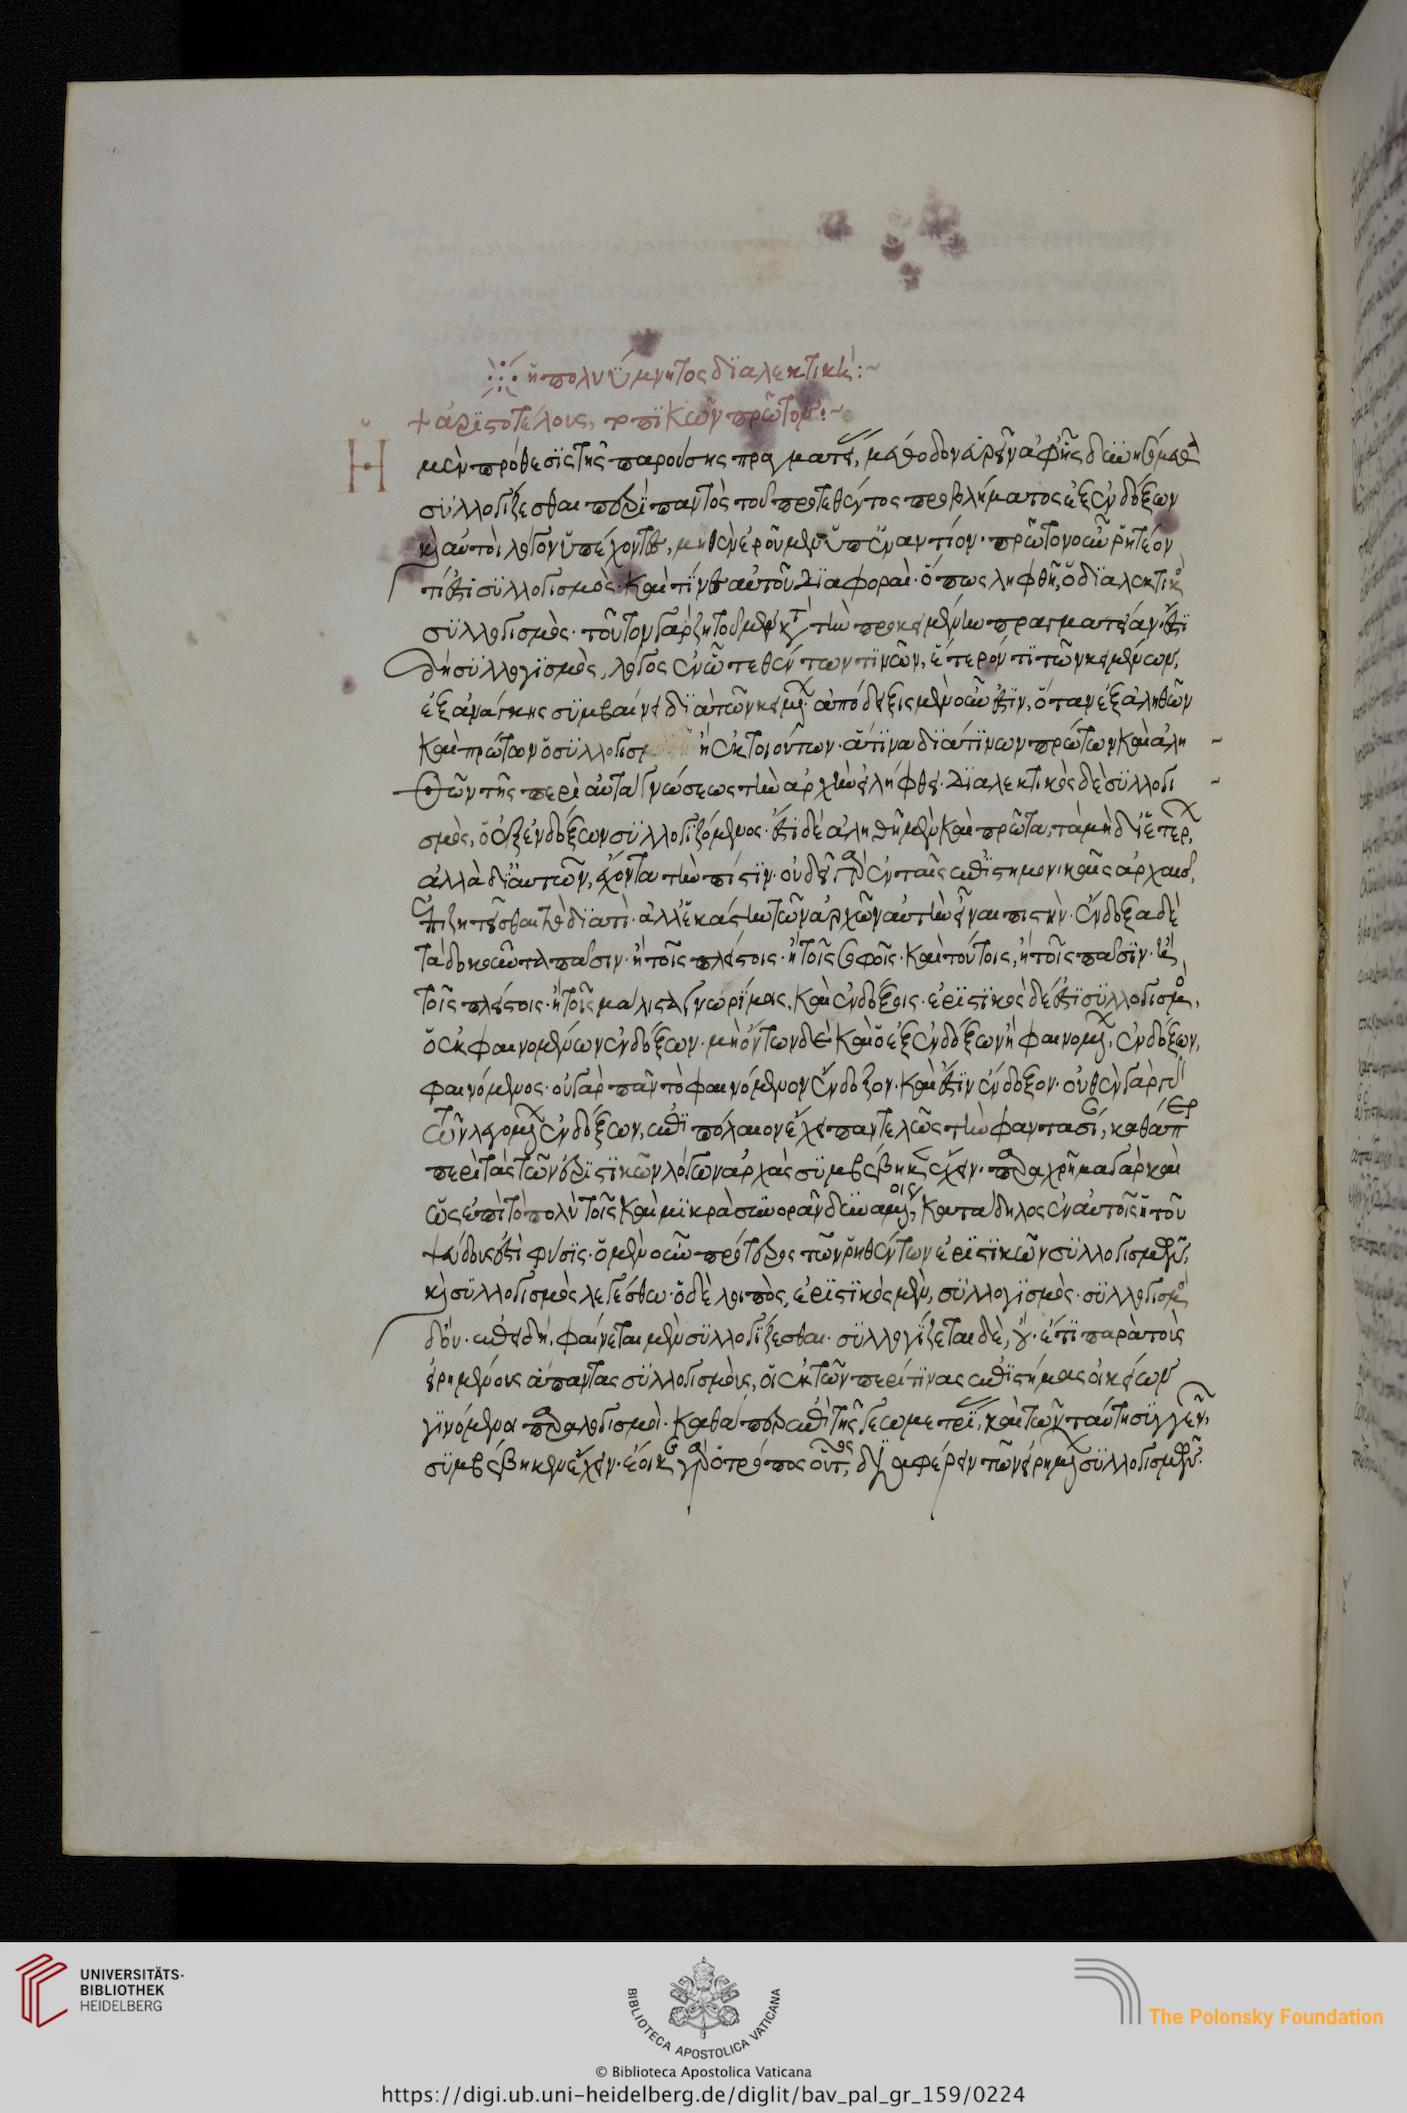 ἡ πολυΰμνητος διαλεκτική :~
+ ἀριστοτέλους, τοπικῶν πρῶτον :~
Ἡ μὲν πρόθεσις τῆς παρούσης πραγματεί, μέθοδον εὑρεῖν ἀφ ἧς δυνησόμεθα
συλλογίζεσθαι περὶ παντὸς τοῦ προτεθέντος προβλήματος ἐξ ἐνδόξων
καὶ αὐτοὶ λόγον ὑπέχοντες, μηθὲν ἐροῦμεν ὑπεναντίον· πρῶτον οὖν ῥητέον
τί ἐστι συλλογισμὸς· καὶ τίνες αὐτοῦ διαφοραὶ· ὅπως ληφθῆ, ὁ διαλεκτικὸς
συλλογισμὸς· τοῦτον γὰρ ζητοῦμεν κατὰ τὴν προκειμένην πραγματείαν· ἔστι
δὴ συλλογισμὸς, λόγος ἐν ᾧ τεθέντων τινῶν, ἕτερόν τι τῶν κειμένων,
ἐξ ἀνάγκης συμβαίνει διὰ τῶν κειμέ· ἀπόδειξις μὲν οὖν ἐστιν, ὅταν ἐξ ἀληθῶν
καὶ πρώτων ὁ συλλογισμ ἢ ἐκ τοιούτων· ἅ τινα διά τινων πρώτων καὶ ἀλη
θῶν τῆς περὶ αὐτὰ γνώσεως τὴν ἀρχὴν εἴληφεν· διαλεκτικὸς δὲ συλλογι
σμὸς, ὁ ἐξ ἐνδόξων συλλογιζόμενος· ἔστι δὲ ἀληθῆ μὲν καὶ πρῶτα, τὰ μὴ δι ἑτέρ,
ἀλλὰ δι αὐτῶν, ἔχοντα τὴν πίστιν· οὐ δεῖ γὰρ ἐν ταῖς ἐπιστημονικαῖς ἀρχαῖς,
ἐπιζητεῖσθαι τὸ διατὶ· ἀλλ ἑκάστην τῶν ἀρχῶν αὐτὴν εἶναι πιστὴν· ἔνδοξα δὲ
τὰ δοκοῦντα πᾶσιν· ἢ τοῖς πλείστοις· ἢ τοῖς σοφοῖς· καὶ τούτοις, ἢ τοῖς πᾶσιν· ἢ
τοῖς πλείστοις· ἢ τοῖς μάλιστα γνωρίμοις, καὶ ἐνδόξοις· ἐριστικὸς δέ ἐστι συλλογισμὸς,
ὁ ἐκ φαινομένων ἐνδόξων· μὴ ὄντων δὲ καὶ ὁ ἐξ ἐνδόξων ἢ φαινομέ, ἐνδόξων,
φαινόμενος· οὐ γὰρ πᾶν τὸ φαινόμενον ἔνδοξον· καὶ ἔστιν ἔνδοξον· οὐθὲν γὰρ
τῶν λεγομέ ἐνδόξων, ἐπιπόλαιον ἔχει παντελῶς τὴν φαντασί, καθάπερ
περὶ τὰς τῶν ἐριστικῶν λόγων ἀρχὰς συμβέβηκεν ἔχειν· παραχρῆμα γὰρ καὶ
ὡς ἐπὶ τὸ πολὺ τοῖς καὶ μικρὰ συνορᾶν δυναμένοις, κατάδηλος ἐν αὐτοῖς ἡ τοῦ
ψεύδους ἐστὶ φύσις· ὁ μὲν οὖν πρότερος τῶν ῥηθέντων ἐριστικῶν συλλογισμῶν,
καὶ συλλογισμὸς λεγέσθω· ὁ δὲ λοιπὸς, ἐριστικὸς μὲν, συλλογισμὸς· συλλογισμὸς
δ οὔ· ἐπειδὴ, φαίνεται μὲν συλλογίζεσθαι· συλλογίζεται δὲ, οὔ· ἔτι παρὰ τοὺς
εἰρημένους ἅπαντας συλλογισμοὺς, οἱ ἐκ τῶν περί τινας ἐπιστήμας οἰκείων
γινόμενοι παραλογισμοὶ· καθάπερ ἐπὶ τῆς γεωμετρί, καὶ τῶν ταύτη συγγεν,
συμβέβηκεν ἔχειν· ἔοικε γὰρ ὁ τρόπος οὗτος, διαφέρειν τῶν εἰρημέ συλλογισμῶν·
UNIVERSITÄTS-
BIBLIOTHEK
HEIDELBERG
BIBLIOTECA APOSTOLICA VATICANA
© Biblioteca Apostolica Vaticana
The Polonsky Foundation
https://digi.ub.uni-heidelberg.de/diglit/bav_pal_gr_159/0224